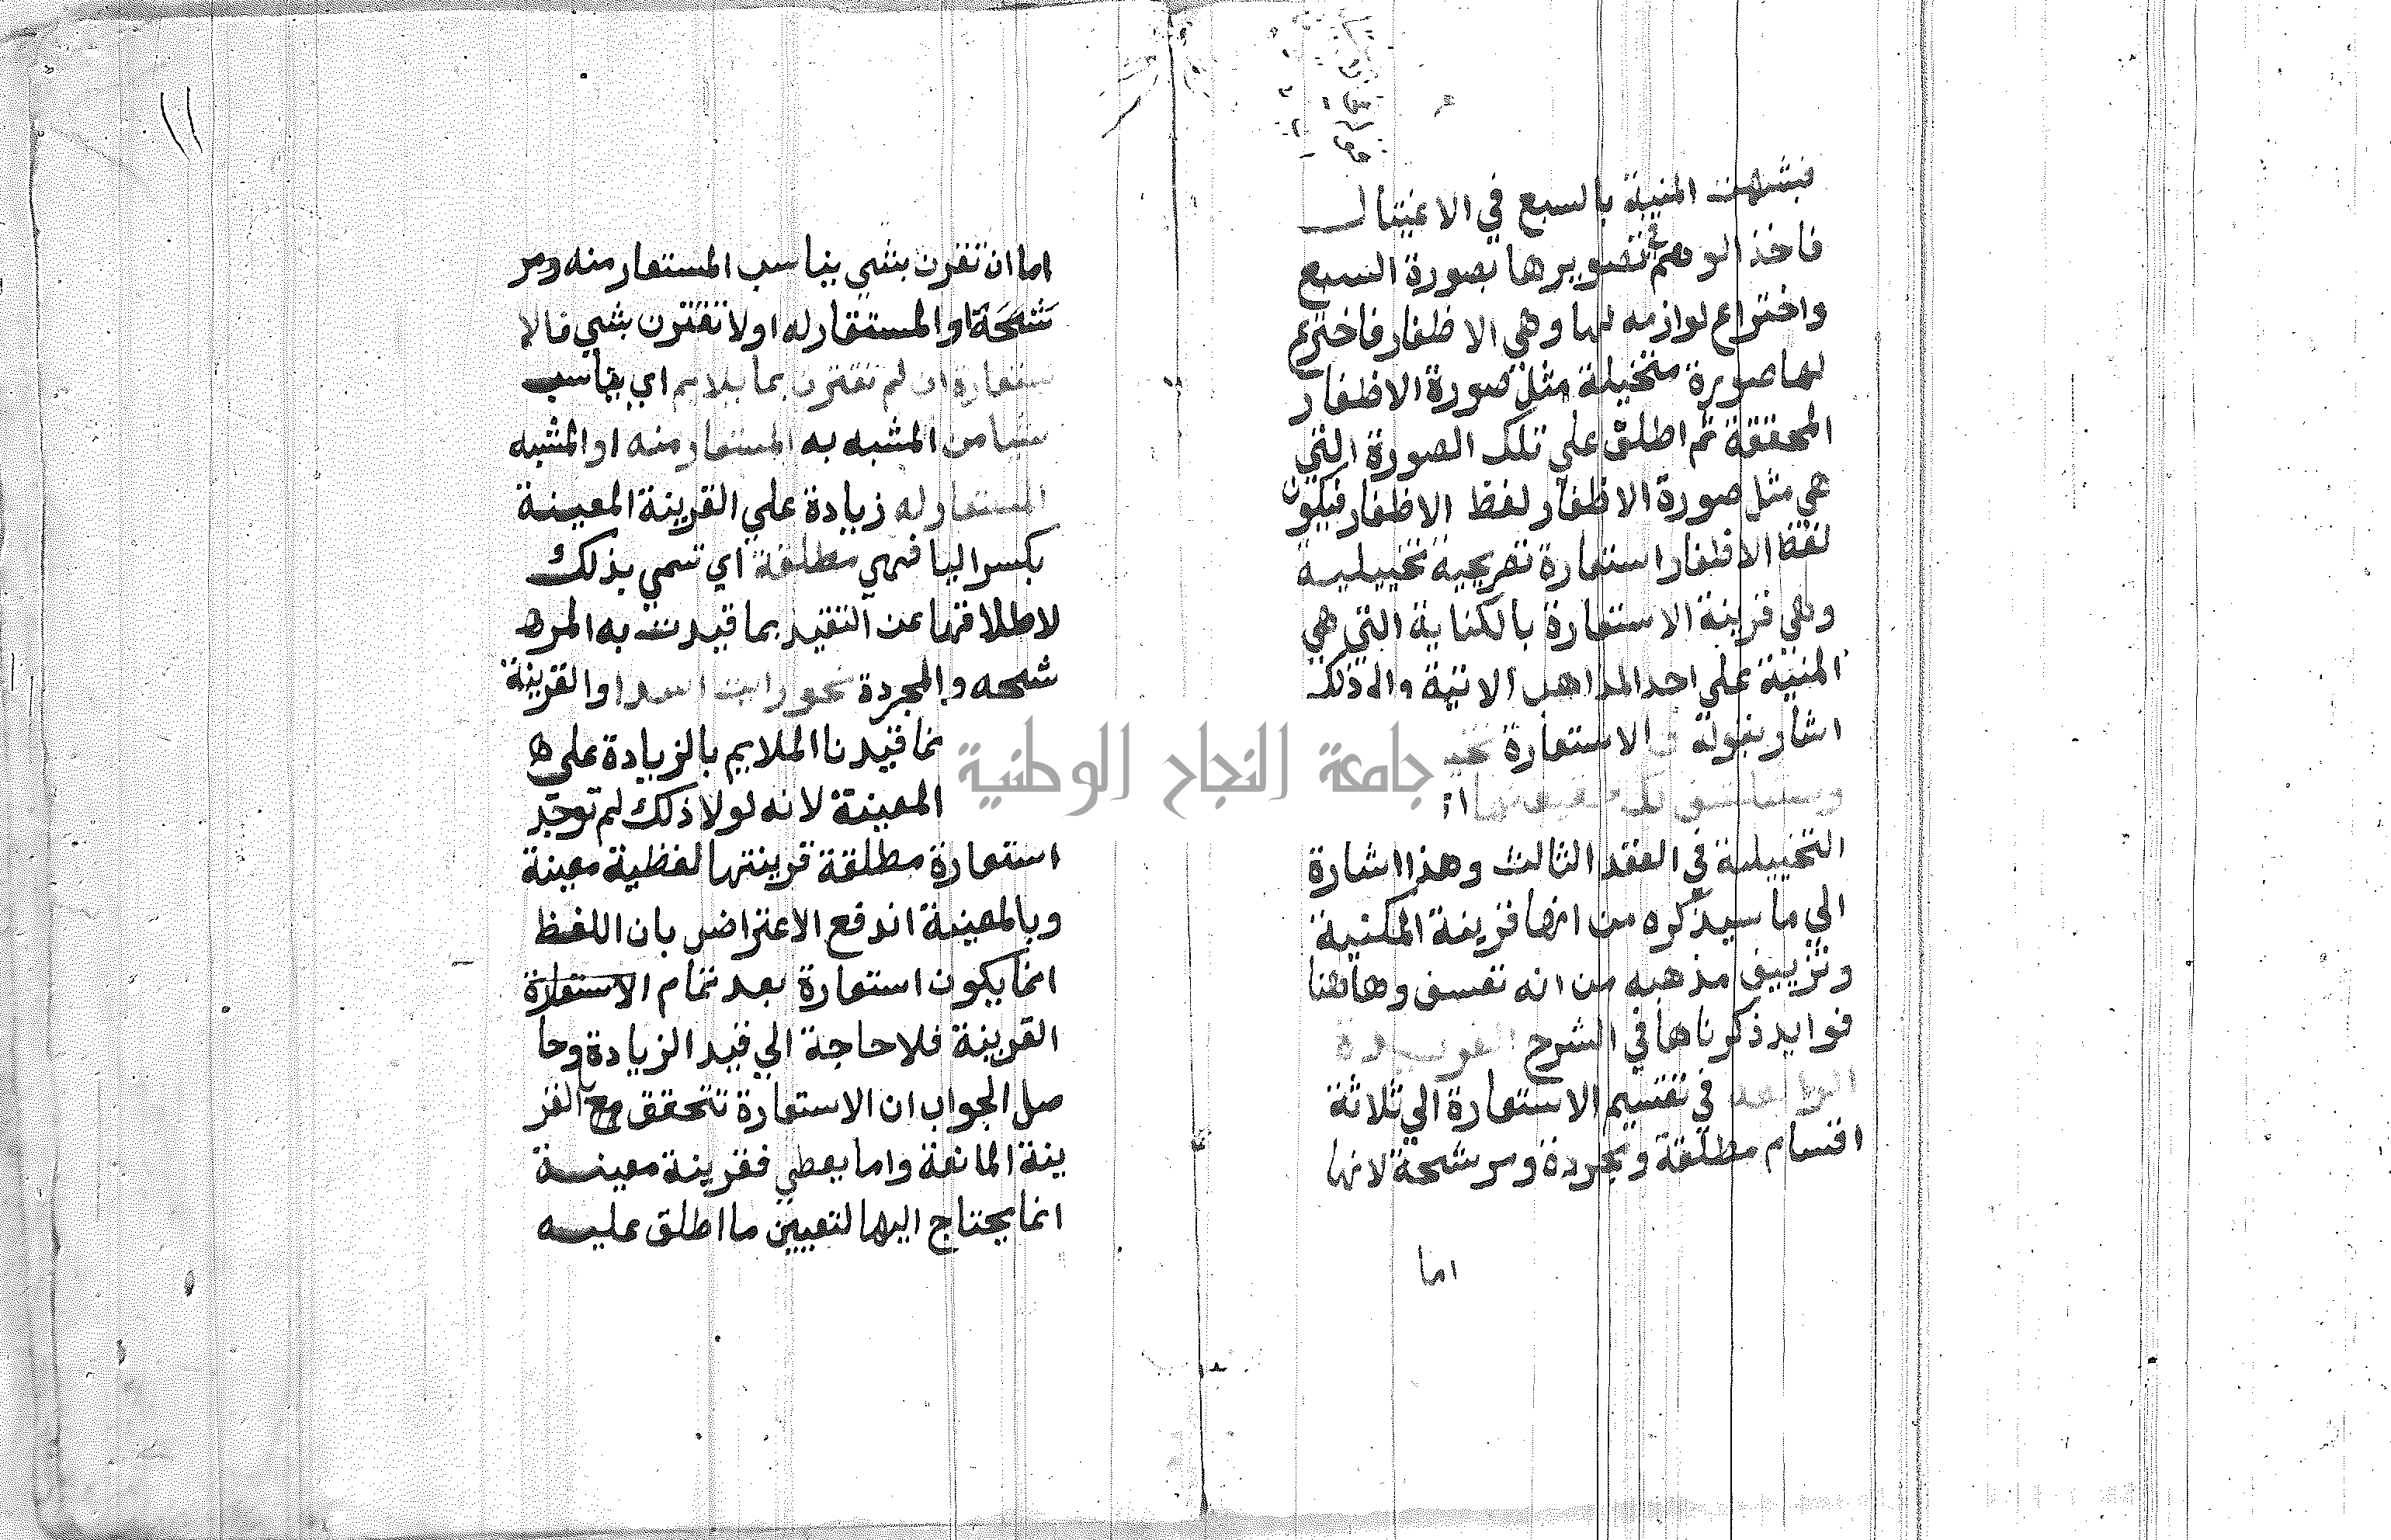 فشبهت المنية بالسبع في الاغتيال
فاخذ الوهم في تصويرها بصورة السبع
واختراع لوازمه لها وهي الاظفار فاخترع
لها صورة متخيلة مثل صورة الاظفار
المحققة ثم اطلق علي تلك الصورة التي
هي مثل صورة الاظفار لفظ الاظفار فيكون
لفظ الاظفار استعارة تصريحية تخييلية
وهي قرينة الاستعارة بالكناية التي هي
المنية علي احد المذاهب الاتية والى ذلك
اشار بقوله فالاستعارة تخييـ
وستاتي
التخييلية في العقد الثالث وهذا اشارة
الي ما سيذكره من انها قرينة المكنية
وتزييف مذهبه من انه تعسف وهاهنا
فوايد ذكرناها في الشرح الفريدة
الرابعة في تقسيم الاستعارة الي ثلاثة
اقسام مطلقة ومجردة ومرشحة لانها
اما
١١
اما ان تقرن بشي يناسب المستعار منه ومر
شحة او المستعار له او لا تقترن بشي فالا
ستعارة ان لم تقترن بما يلايم اي يناسب
شيا من المشبه به المستعار منه او المشبه
المستعار له زيادة علي القرينة المعينة
بكسر اليا فهي مطلقة اي تسمي بذلك
لاطلاقها عن التقيد بما قيدت به المر
شحه والمجردة نحو رايت اسدا والقرينة
نما قيدنا الملايم بالزيادة علي
المعينة لانه لولا ذلك لم توجد
استعارة مطلقة قرينتها لفظية معينة
وبالمعينة اندفع الاعتراض بان اللفظ
انما يكون استعارة بعد تمام الاستعارة
القرينة فلا حاجة الي قيد الزيادة وحا
صل الجواب ان الاستعارة تتحقق مع القر
ينة المانعة واما يعطي فقرينة معينة
انما يحتاج اليها لتعيين ما اطلق عليه
جامعة النجاح الوطنية